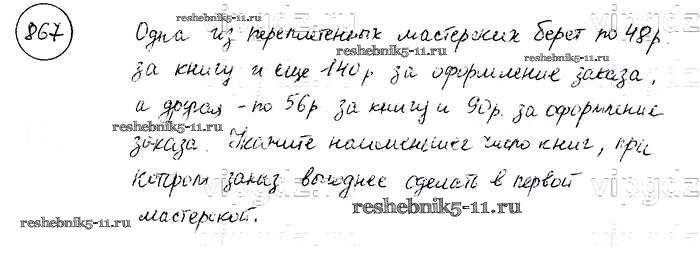 867
Одна из переплетенных мастерских берет по 48р.
за книгу и еще 140р за оформление заказа,
а другая - по 56р за книгу и 90р. за оформление
заказа. Укажите наименьшее число книг, при
котором заказ выгоднее сделать в первой
мастерской.
reshebnik5-11.ru
reshebnik5-11.ru
reshebnik5-11.ru
reshebnik5-11.ru
reshebnik5-11.ru
reshebnik5-11.ru